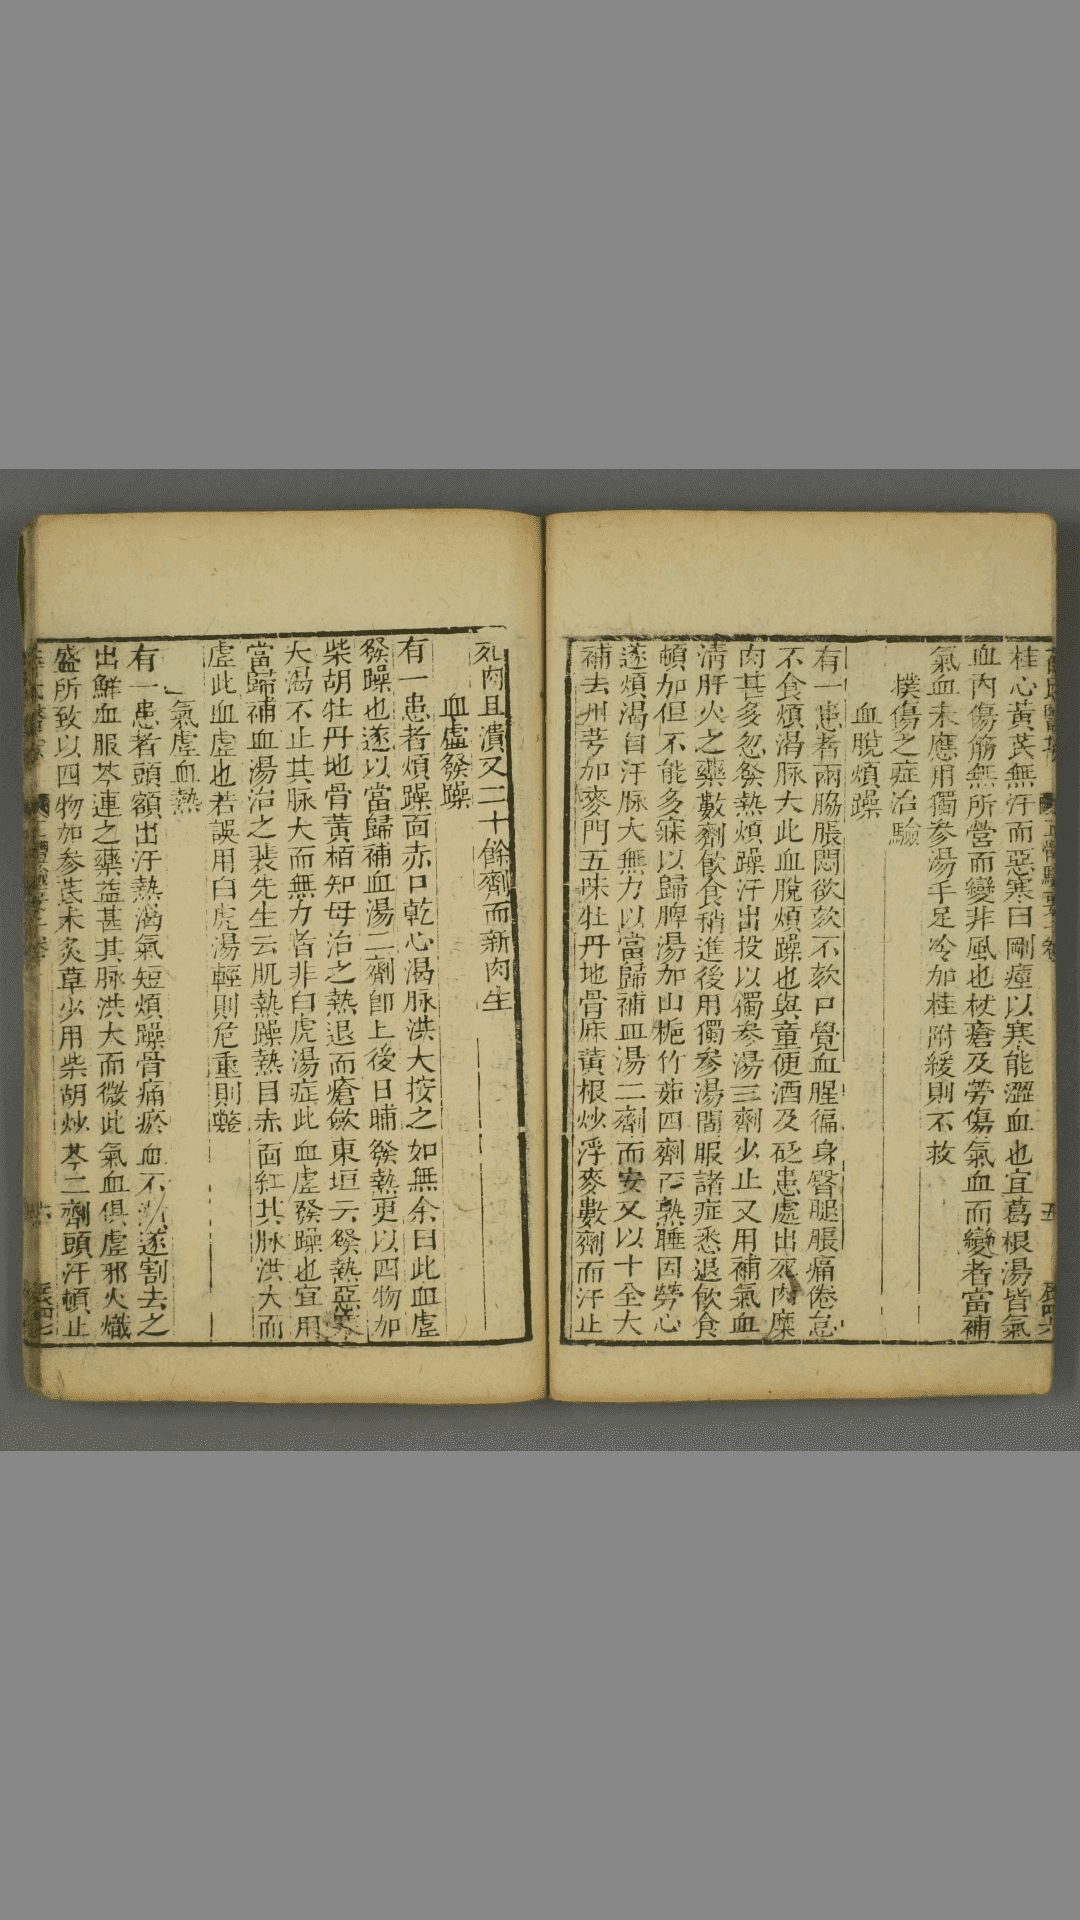 桂心黃芪無汗而惡寒曰剛痓以寒能澀血也宜葛根湯皆氣
血內傷筋無所營而變非風也杖瘡及勞傷氣血而變者當補
氣血未應用獨參湯手足冷加桂附緩則不救
撲傷之症治驗
血脫煩躁
有一患者兩脇脹悶欲欬不欬口覺血腥徧身臀腿脹痛倦怠
不食煩渴脉大此血脫煩躁也與童便酒及砭患處出死肉糜
肉甚多忽發熱煩躁汗出投以獨參湯三劑少止又用補氣血
清肝火之藥數劑飲食稍進後用獨參湯間服諸症悉退飲食
頓加但不能多寐以歸脾湯加山梔竹茹四劑而熟睡因勞心
遂煩渴自汗脉大無力以當歸補血湯二劑而安又以十全大
補去川芎加麥門五味牡丹地骨麻黃根炒浮麥數劑而汗止
死肉且潰又二十餘劑而新肉生
血虛發躁
有一患者煩躁面赤口乾心渴脉洪大按之如無余曰此血虛
發躁也遂以當歸補血湯二劑卽上後日晡發熱更以四物加
柴胡牡丹地骨黃栢知母治之熱退而瘡斂東垣云發熱惡寒
大渴不止其脉大而無力者非白虎湯症此血虛發躁也宜用
當歸補血湯治之裴先生云肌熱躁熱目赤面紅其脉洪大而
虛此血虛也若誤用白虎湯輕則危重則斃
氣虛血熱
有一患者頭額出汗熱渴氣短煩躁骨痛瘀血不潰遂割去之
出鮮血服芩連之藥益甚其脉洪大而微此氣血俱虛邪火熾
盛所致以四物加參芪朮炙草少用柴胡炒芩二劑頭汗頓止